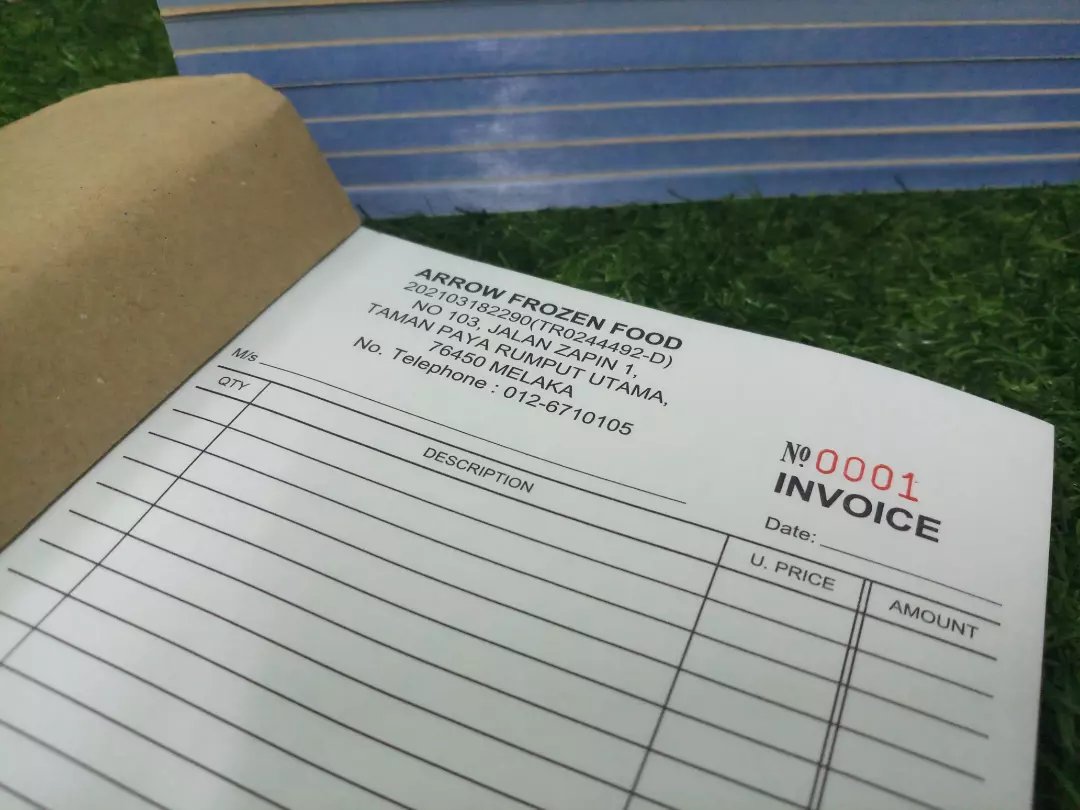 ARROW FROZEN FOOD
202103182290(TR0244492-D)
NO 103, JALAN ZAPIN 1,
TAMAN PAYA RUMPUT UTAMA,
76450 MELAKA
No. Telephone : 012-6710105
M/s
№ 0001
INVOICE
Date:
QTY DESCRIPTION U. PRICE AMOUNT